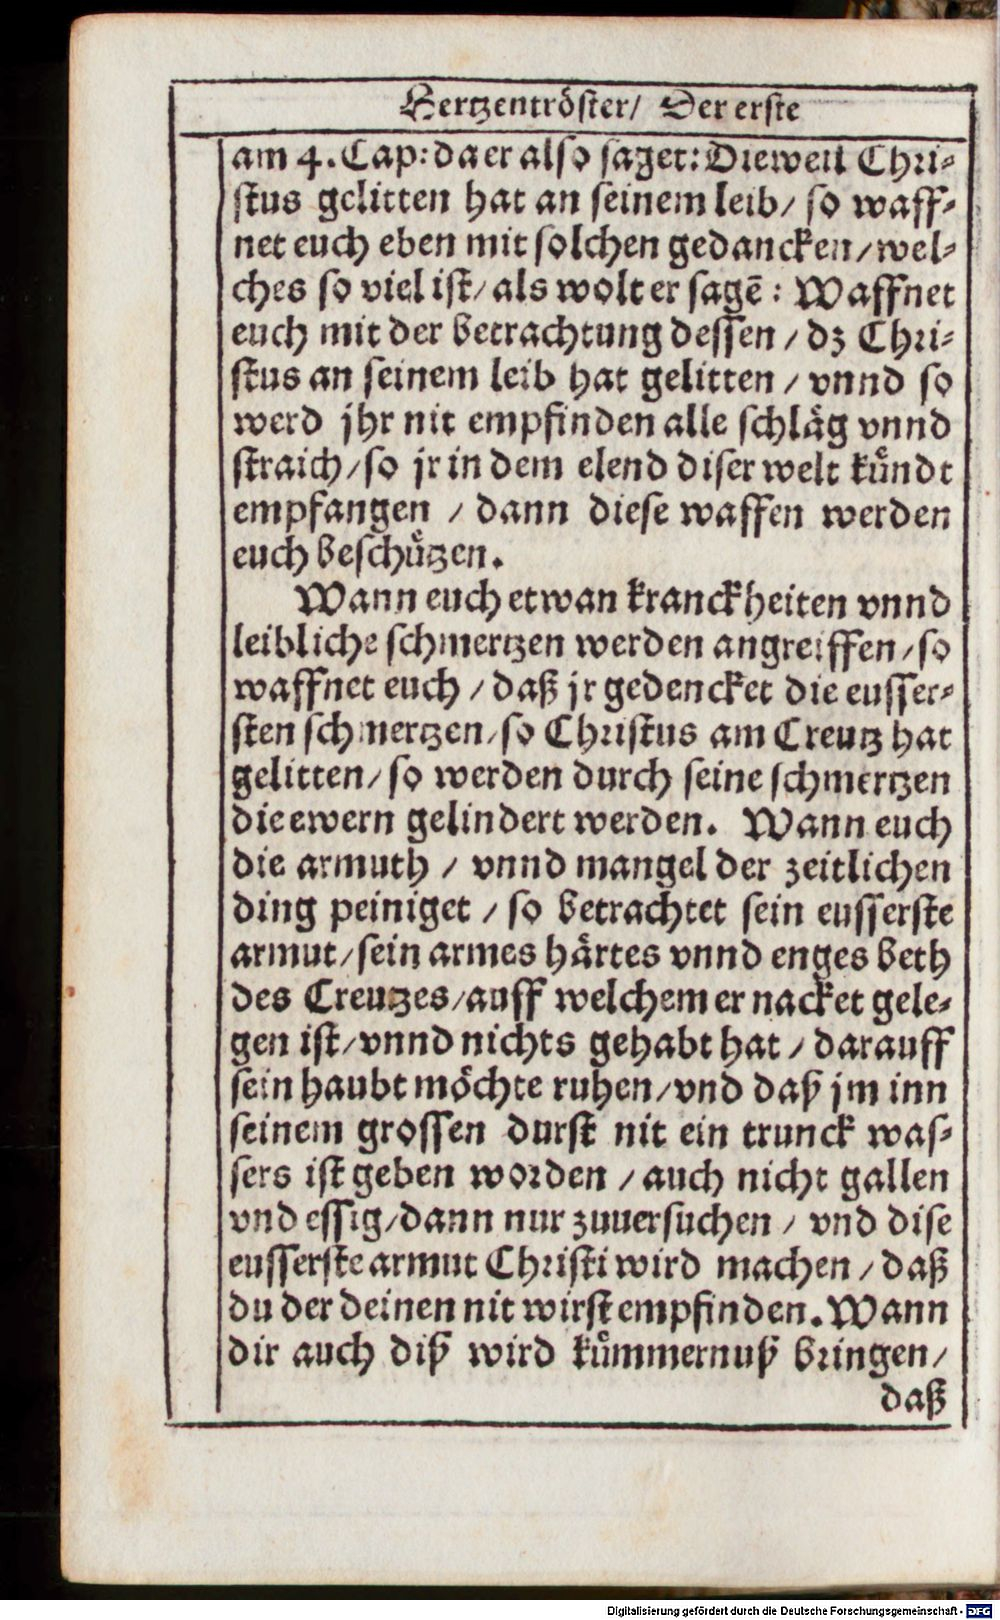 Hertzentröster/ Der erste
am 4. Cap: da er also saget: Dieweil Chri-
stus gelitten hat an seinem leib/ so waff-
net euch eben mit solchen gedancken/ wel-
ches so viel ist/ als wolt er sagē: Waffnet
euch mit der betrachtung dessen/ dz Chri-
stus an seinem leib hat gelitten/ vnnd so
werd jhr nit empfinden alle schläg vnnd
straich/ so jr in dem elend diser welt kündt
empfangen/ dann diese waffen werden
euch beschützen.
Wann euch etwan kranckheiten vnnd
leibliche schmertzen werden angreiffen/ so
waffnet euch/ daß jr gedencket die eusser-
sten schmertzen/ so Christus am Creutz hat
gelitten/ so werden durch seine schmertzen
die ewern gelindert werden. Wann euch
die armuth/ vnnd mangel der zeitlichen
ding peiniget/ so betrachtet sein eusserste
armut/ sein armes härtes vnnd enges beth
des Creutzes/ auff welchem er nacket gele-
gen ist/ vnnd nichts gehabt hat/ darauff
sein haubt möchte ruhen/ vnd daß jm inn
seinem grossen durst nit ein trunck was-
sers ist geben worden/ auch nicht gallen
vnd essig/ dann nur zuuersuchen/ vnd dise
eusserste armut Christi wird machen/ daß
du der deinen nit wirst empfinden. Wann
dir auch diß wird kümmernuß bringen/
daß
Digitalisierung gefördert durch die Deutsche Forschungsgemeinschaft - DFG